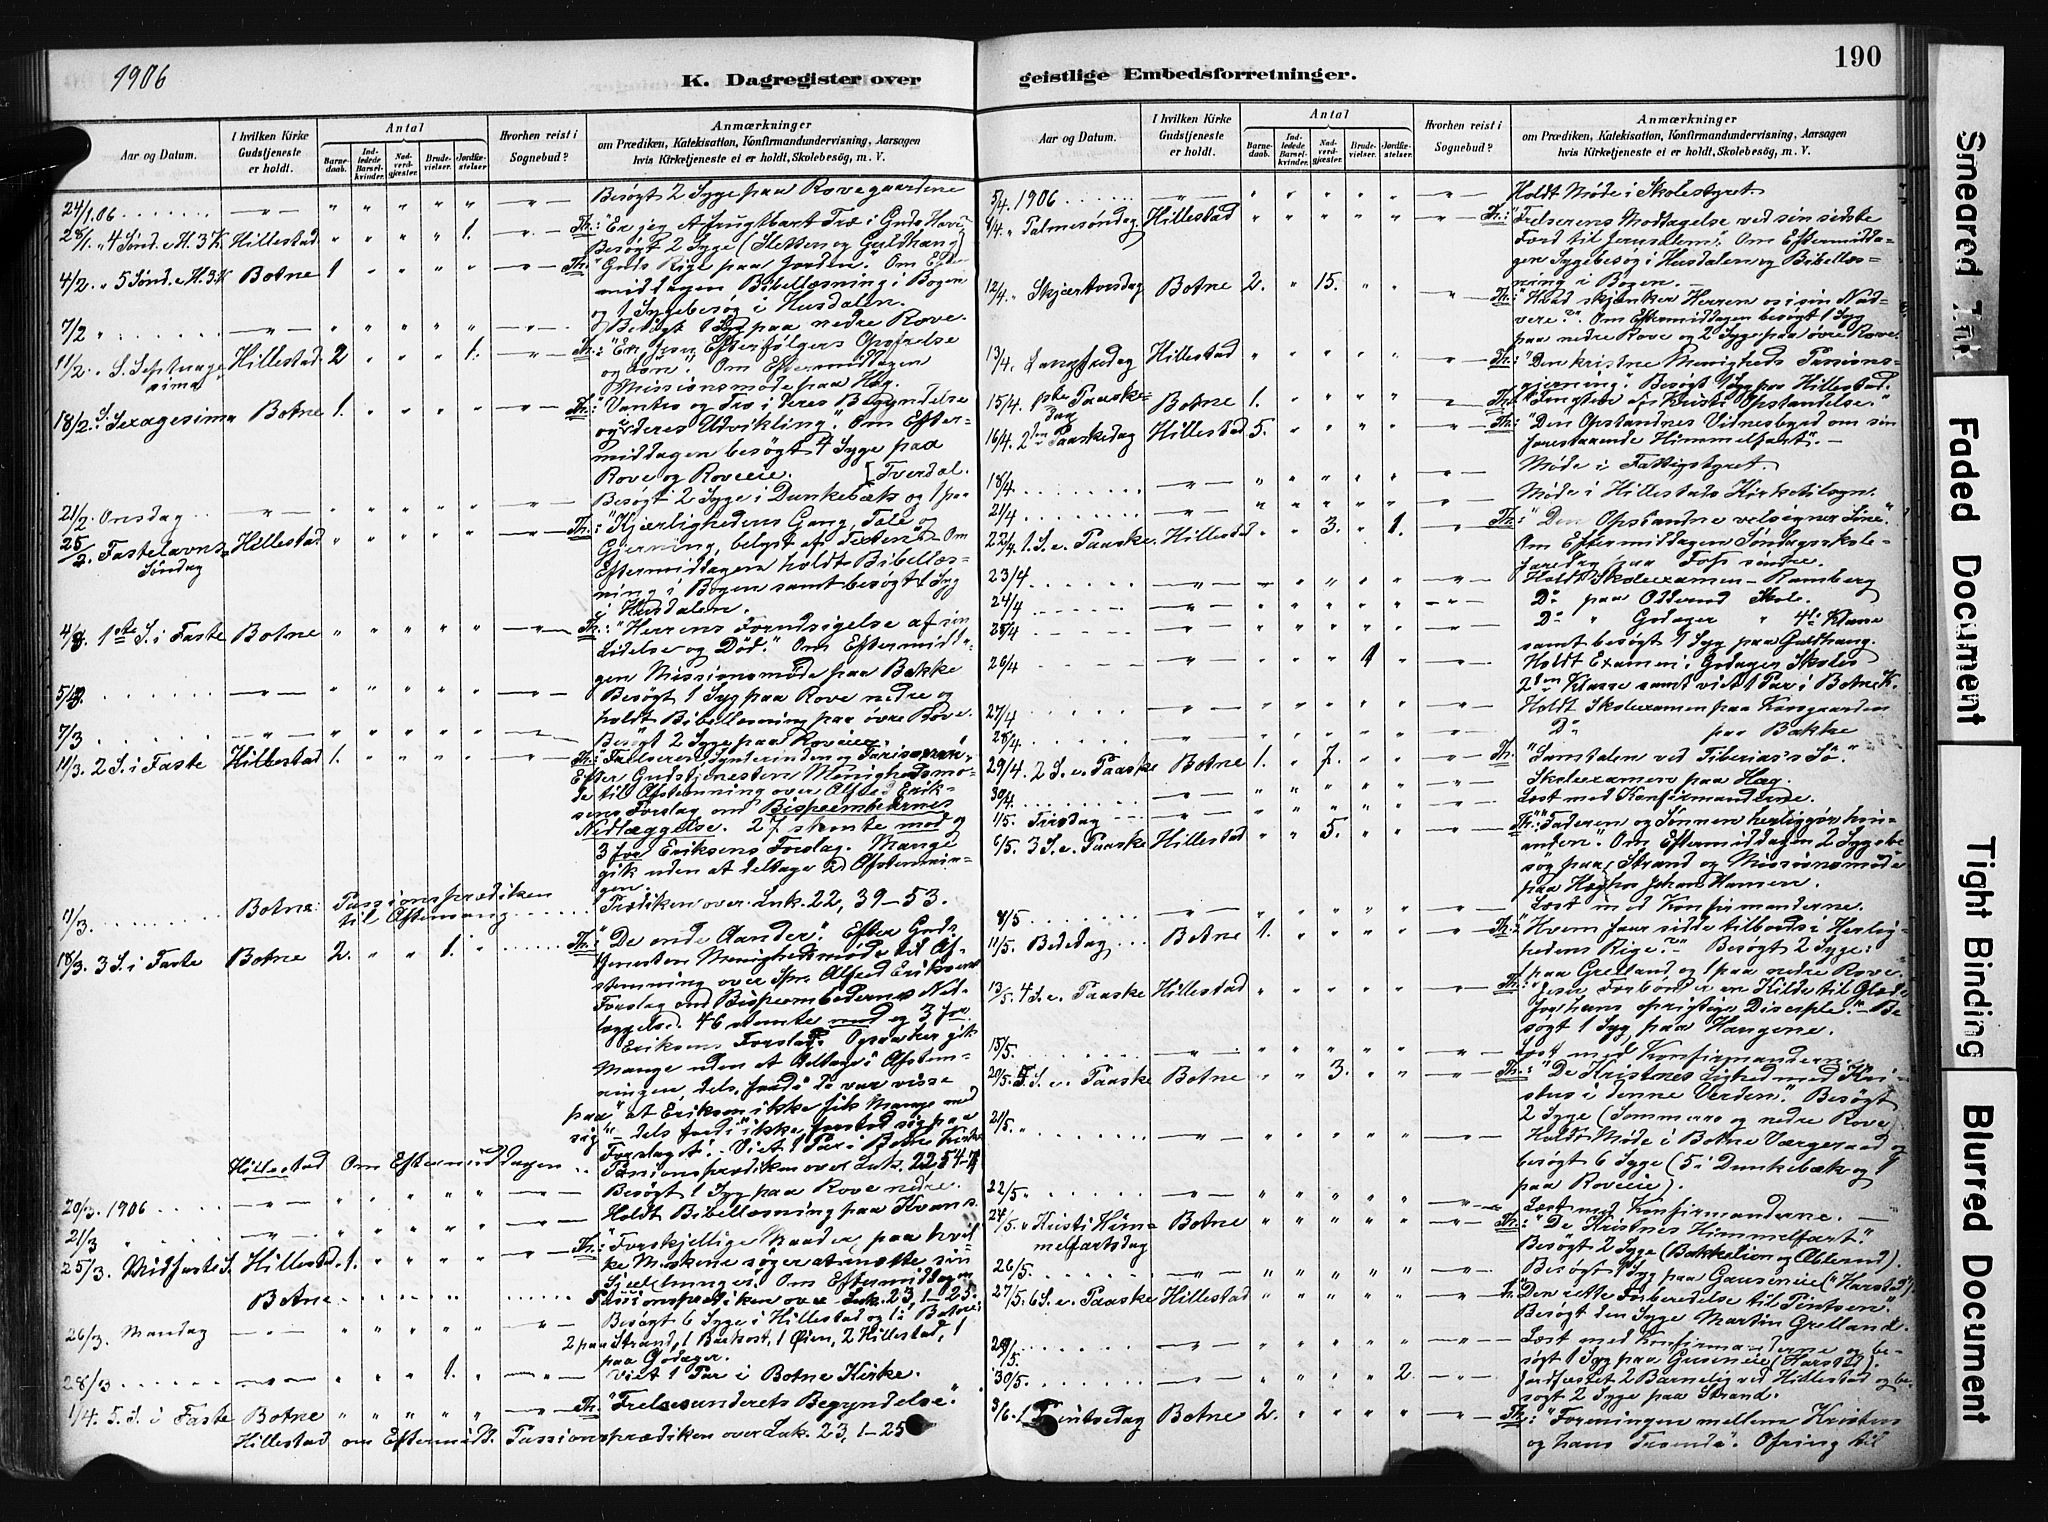 1906
K. Dagregister over
geistlige Embedsforretninger.
190
Aar og Datum.
I hvilken Kirke Gudstjeneste er holdt.
Antal
Barnedaab.
Indledede Barselkvinder.
Nadverdgjæster.
Brudevielser.
Jordfæstelser.
Hvorhen reist i Sognebud?
Anmærkninger
om Prædiken, Katekisation, Konfirmandundervisning, Aarsagen
hvis Kirketjeneste ei er holdt, Skolebesøg, m. V.
24/1.06 Besøgt 2 Syge paa Rovegaardene
28/1. 4 Sønd. e. H. 3 K. Hillestad 1. Th.: "Er jeg et frugtbart Træ i Guds Have
Besøgt 2 Syge (Sletten og Guldhaug)
4/2. 5 Sønd. e. H. 3. K Botne 1 Th. "Guds Rige paa Jorden." Om Eft
middagen Bibellæsning i Bogen
og 1 Sygebesøg i Husdalen.
7/2 Besøgt 1 Syg paa nedre Rove.
11/2. S. Septuagesima Hillestad 2 1. Th.: Efterfølgers Opofrelse
og Løn." Om Eftermiddagen
Missionsmøde paa Høg.
18/2. S. Sexagesima Botne 1. Th.: "Vantro og Tro i deres Begyndelse
og deres Udvikling". Om Efter-
middagen besøgt 4 Syge paa
Rove og Roveeie. Tverdal.
21/2. Onsdag Besøgt 2 Syge i Dunkebæk og 1 paa
25/2. Fastelavns Søndag Hillestad Th.: "Kjærlighedens Gang, Tale og
Gjerning, belyst af Texten." Om
Eftermiddagen holdt Bibellæs-
ning i Bogen samt besøgt 1 Syg
i Husdalen.
4/3. 1ste S. i Faste Botne Th.: "Herrens Forudsigelse af sin
Lidelse og Død." Om Eftermidda-
gen Missionsmøde paa Bakke
5/3 Besøgt 1 Syg paa Rove nedre og
holdt Bibellæsning paa øvre Rove.
7/3 Besøgt 2 Syge paa Roveeie.
11/3. 2 S. i Faste Hillestad 1. Th. Frelseren, Synderinden og Farisæeren.
Efter Gudstjenesten Menighedsmø-
de til Afstemning over Alfred Erik-
sens Forslag om Bispeembedernes
Nedlæggelse. 27 stemte mod og
3 for Eriksens Forslag. Mange
gik uden at deltage i Afstemnin-
gen.
11/3. Botne Passionsprædiken til Aftensang Prædiken over Luk. 22, 39-53.
18/3. 3 S. i Faste Botne 2. 1. Th: "De onde Aander." Efter Guds
tjenesten Menighedsmøde til Af-
stemning over Spr. Alfred Eriksens
Forslag om Bispeembedernes Ned-
læggelse. 46 stemte mod og 3 for
Eriksens Forslag. Ogsaa her gik
Mange uden at deltage i Afstem-
ningen, dels, fordi de var visse
paa" at Eriksen ikke fik Mange med
sig", dels fordi ikke forstod sig paa
Forslaget. Viet 1 Par i Botne Kirke
Hillestad Om Eftermiddagen Passionsprædiken over Luk. 22 54-71
20/3. 1906 Besøgt 1 Syg paa Rove nedre.
21/3 Holdt Bibellæsning paa Kvams
25/3. Midfaste S. Hillestad. 1. Th: "Forskjellige Maader, paa hvil-
ke Menneskene søger at mætte sin
Sjæl Om Eftermiddagen
Botne Passionsprædiken over Luk. 23, 1-25.
26/3. Mandag Besøgt 6 Syge i Hillestad og 1 i Botne:
2 paa Strand, 1 Barkost, 1 Øien, 2 Hillestad, 1
paa Godager.
28/3 1. Viet 1 Par i Botne Kirke.
1/4. 5. S. i Faste Botne Th: "Frelsesunderets Begyndelse."
Hillestad om Eftermidd. Passionsprædiken over Luk. 23, 1-25
Aar og Datum.
I hvilken Kirke Gudstjeneste er holdt.
Antal
Barnedaab.
Indledede Barselkvinder.
Nadverdgjæster.
Brudevielser.
Jordfæstelser.
Hvorhen reist i Sognebud?
Anmærkninger
om Prædiken, Katekisation, Konfirmandundervisning, Aarsagen
hvis Kirketjeneste ei er holdt, Skolebesøg, m. V.
5/4. 1906 Holdt Møde i Skolestyret
8/4. Palmesøndag Hillestad Th: "Frelserens Modtagelse ved sin sidste
Færd til Jerusalem". Om Eftermidda-
gen Sygebesøg i Husdalen og Bibellæs-
ning i Bogen.
12/4. Skjærtorsdag Botne 2. 15. Th: "Hvad skjænker Herren os i sin Nad-
vere?" Om Eftermiddagen besøgt 1 Syg
paa nedre Rove og 2 Syge paa øvre Rove.
13/4. Langfredag Hillestad Th: "Den kristne Menigheds Pasions-
gjerning". Besøgt 1 Syg paa Hillestad.
15/4. 1ste Paaskedag Botne 1. Th: "Frugten af Kristi Opstandelse."
16/4. 2den Paaskedag Hillestad 5. Th: "Den Opstandnes Vidnesbyrd om sin
forestaaende Himmelfart".
18/4 Møde i Fattigstyret.
21/4 Møde i Hillestads Kirketilsyn.
22/4. 1. S. e. Paaske Hillestad 3. 1. Th: "Den Opstandne velsigner Sine."
Om Eftermiddagen Søndagsskole-
foredag paa Fos søndre.
23/4 Holdt Skoleexamen - Ramberg
24/4 Do paa Odderud Skole.
25/4 Do " Godager " 4de Klasse
samt besøgt 1 Syg paa Guldhaug.
26/4 1 Holdt Examen i Godager Skoles
2den Klasse samt viet 1 Par i Botne K.
27/4 Holdt Skoleexamen paa Langaarden
28/4. Do paa Bakke
29/4. 2 S. e. Paaske Botne 1. 7. Th: "Samtalen ved Tiberias's Sø."
30/4. Skoleexamen paa Høg.
1/5. Tirsdag Læst med Konfirmanderne.
6/5. 3 S. e. Paaske Hillestad 5. Th: "Faderen og Sønnen herliggjør hin-
anden". Om Eftermiddagen 2 Sygebe-
søg paa Strand og Missionsmøde
paa Høg hos Johan Hansen.
8/5. Læst med Konfirmanderne.
11/5. Bededag Botne 1. Th: "Hvem faar sidde tilbords i Herlig-
hedens Rige?" Besøgt 2 Syge:
1 paa Grelland og 1 paa nedre Rove.
13/5. 4 S. e. Paaske Hillestad Th: Forbøn er en Kilde til Glæde
for hans oprigtige Disciple." Be-
søgt 1 Syg paa Haugene.
15/5. Læst med Konfirmanderne.
20/5. 5 S. e. Paaske Botne 3. Th: "De Kristnes Lighed med Kri-
stus i denne Verden." Besøgt
2 Syge (Sommerro og nedre Rove)
21/5. Holdt Møde i Botne Værgeraad og
besøgt 6 Syge (5 i Dunkebæk og 1
paa Roveeie).
22/5. Læst med Konfirmanderne.
24/5. Kristi Himmelfartsdag Botne Th: "De Kristnes Himmelfart."
Besøgt 2 Syge (Bakkelien og Ablerud).
26/5. Besøgt 1 Syg paa Gauseneie ("Harstad")
27/5. 6 S. e. Paaske Hillestad "Den rette Forberedelse til Pintsen".
Besøgt den Syge Martin Grelland.
29/5. Læst med Konfirmanderne og be-
søgt 1 Syg paa Guseneie (Harstad).
30/5. 2. Jordfæstet 2 Barnelig ved Hillestad og be-
søgt 2 Syge paa Strand.
3/6. 1 Pintsedag Botne 2. Th: "Foreningen mellem Kristus
og hans Troende". Ofring til
Smeared Ink
Faded Document
Tight Binding
Blurred Document